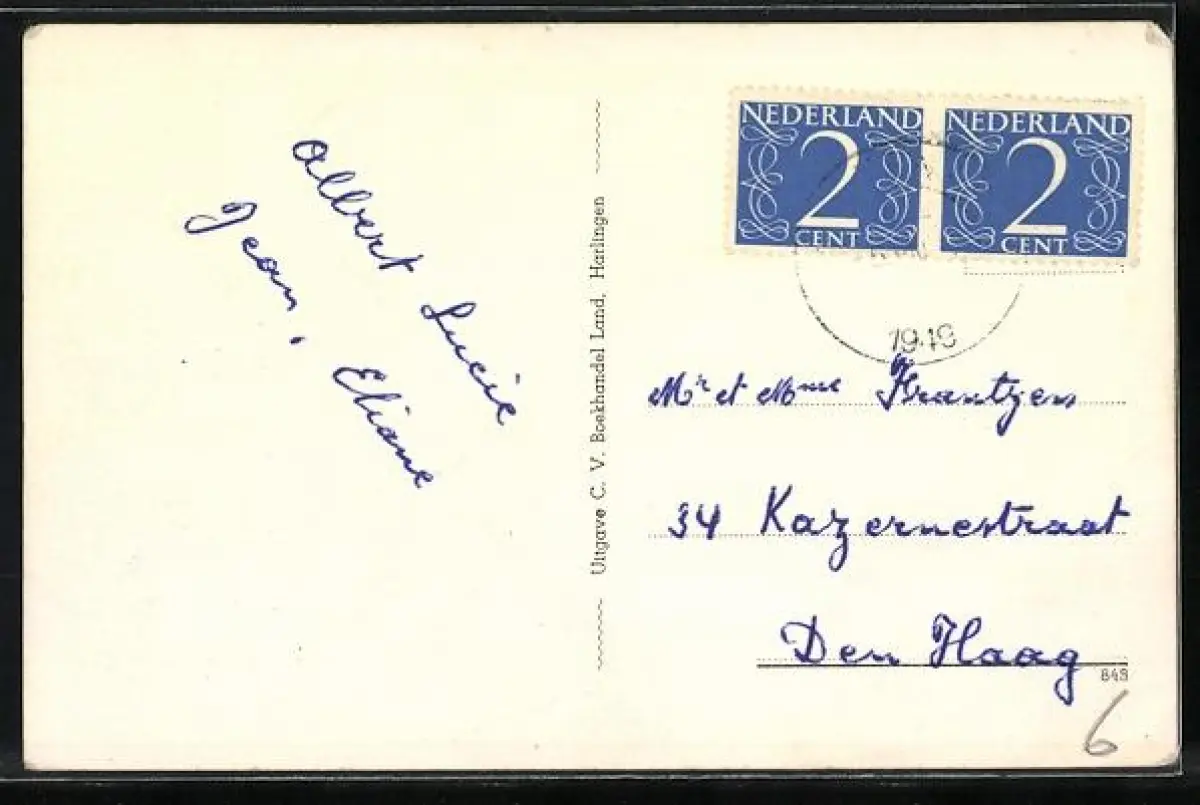 Albert Lucie
Jean, Eliane
Uitgave C. V. Boekhandel Land, Harlingen
NEDERLAND
2
CENT
NEDERLAND
2
CENT
1949
Mr et Mme Krantzen
34 Kazernestraat
Den Haag
843
6